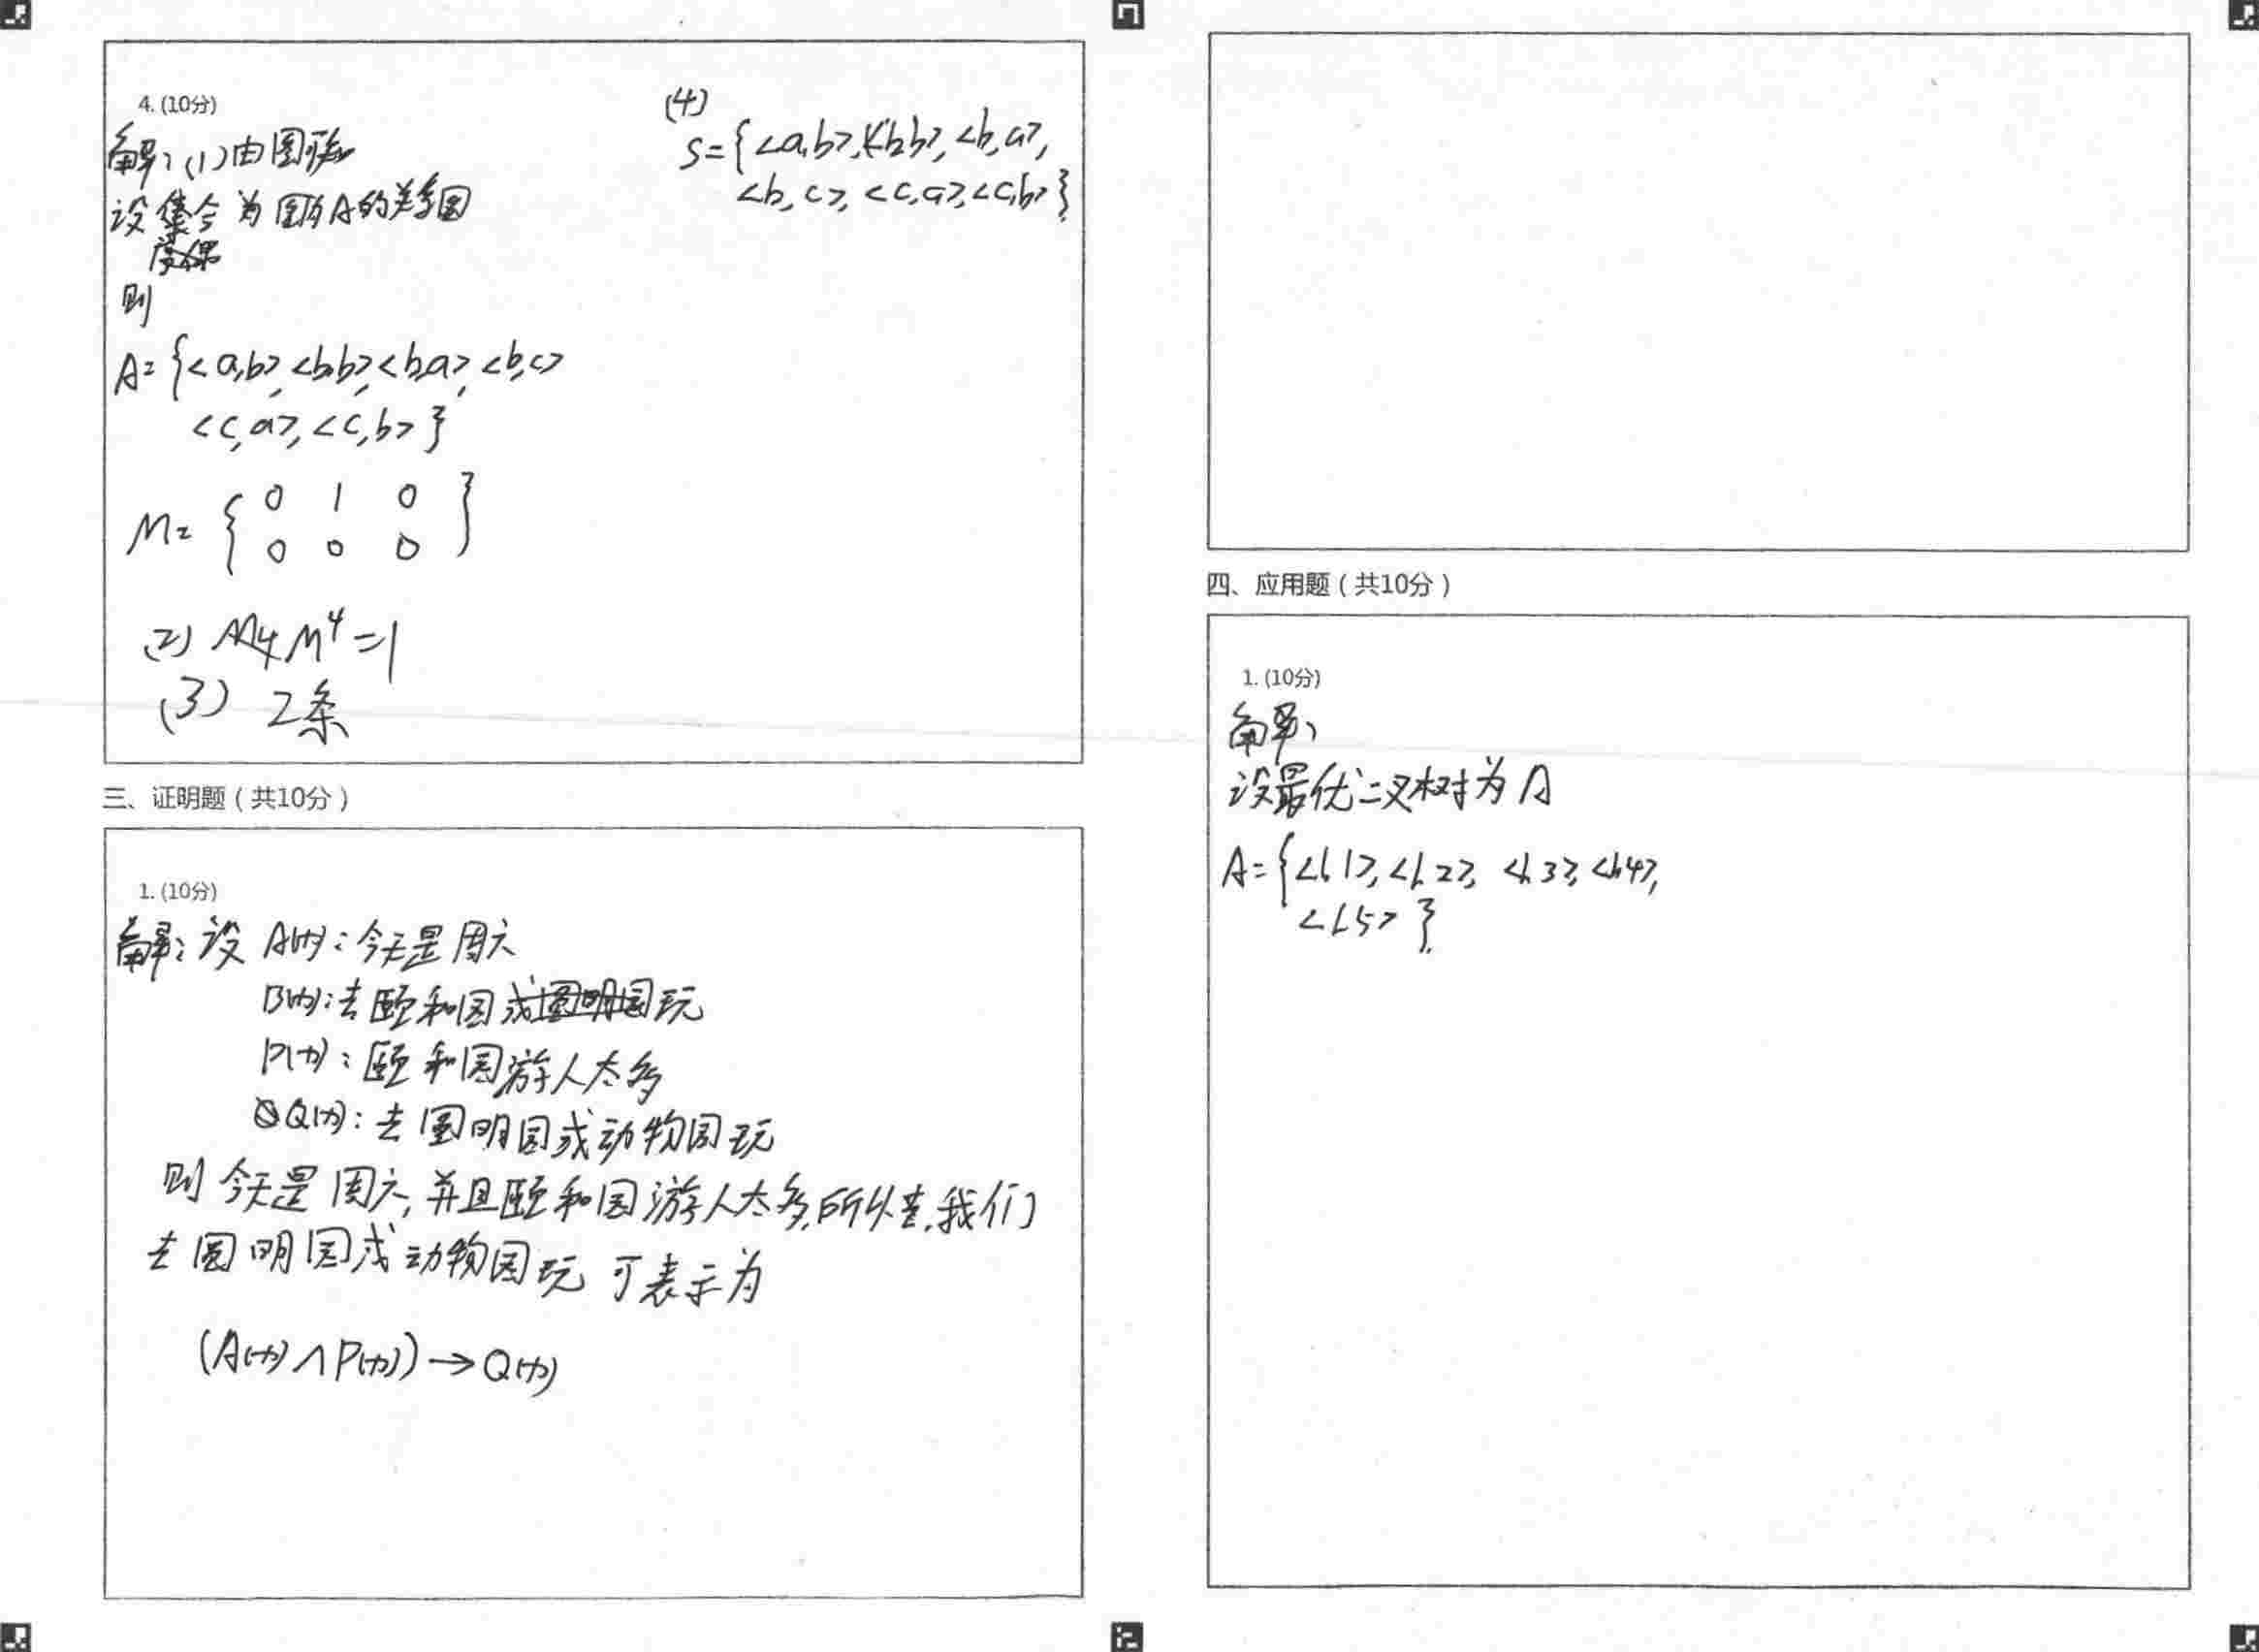 4. (10分)
解：(1)由图形
设集合为图A的关系图
则
A={<a,b>,<b,b>,<b,a>,<b,c>
<c,a>,<c,b>}
M={ 0 1 0
0 0 0 }
(2) M⁴=1
(3) 2条
(4)
S={<a,b>,<b,b>,<b,a>,
<b,c>,<c,a>,<c,b>}
三、证明题（共10分）
1. (10分)
解：设 A(x)：今天是周六
B(x)：去颐和园或圆明园玩
P(x)：颐和园游人太多
Q(x)：去圆明园或动物园玩
则今天是周六,并且颐和园游人太多,所以,我们
去圆明园或动物园玩可表示为
(A(x)∧P(x))→Q(x)
四、应用题（共10分）
1. (10分)
解：
设最优二叉树为A
A={<1,1>,<1,2>,<1,3>,<1,4>,
<1,5>}